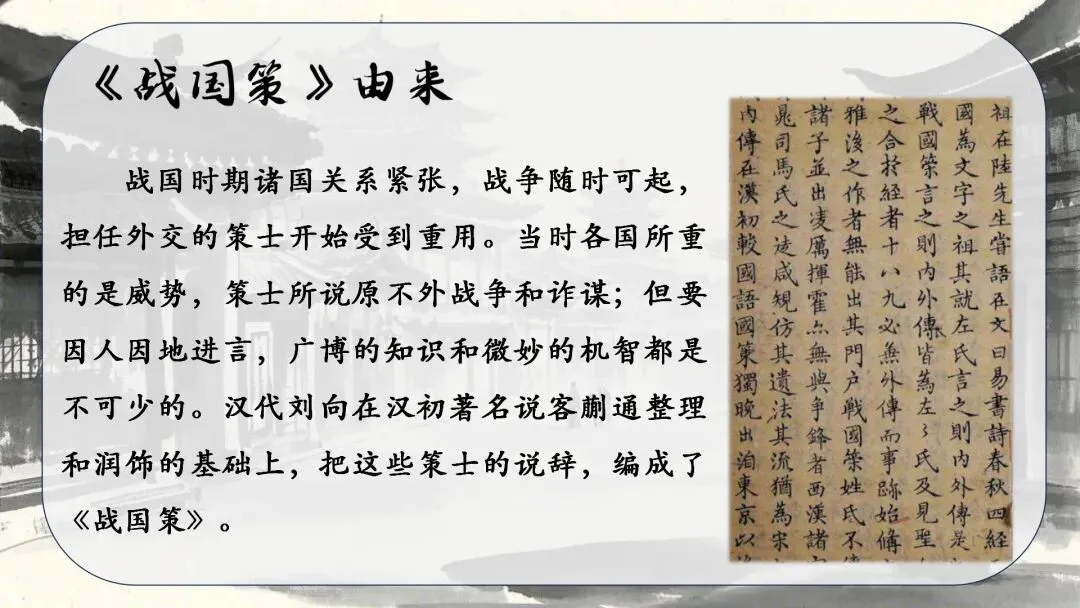 《战国策》由来
战国时期诸国关系紧张，战争随时可起，
担任外交的策士开始受到重用。当时各国所重
的是威势，策士所说原不外战争和诈谋；但要
因人因地进言，广博的知识和微妙的机智都是
不可少的。汉代刘向在汉初著名说客蒯通整理
和润饰的基础上，把这些策士的说辞，编成了
《战国策》。
祖在陸先生嘗語在文曰易書詩春秋四經
國為文字之祖其就左氏言之則內外傳是
戰國策言之則內外傳皆為左氏及見聖
之合於經者十八九必無外傳而事跡始備
雅後之作者無能出其門戶戰國策姓氏不傳
諸子並出凌厲揮霍無與爭鋒者西漢諸
晁司馬氏之徒咸規仿其遺法其流猶為宋
內傳在漢初較國語國策獨晚出洎東京以